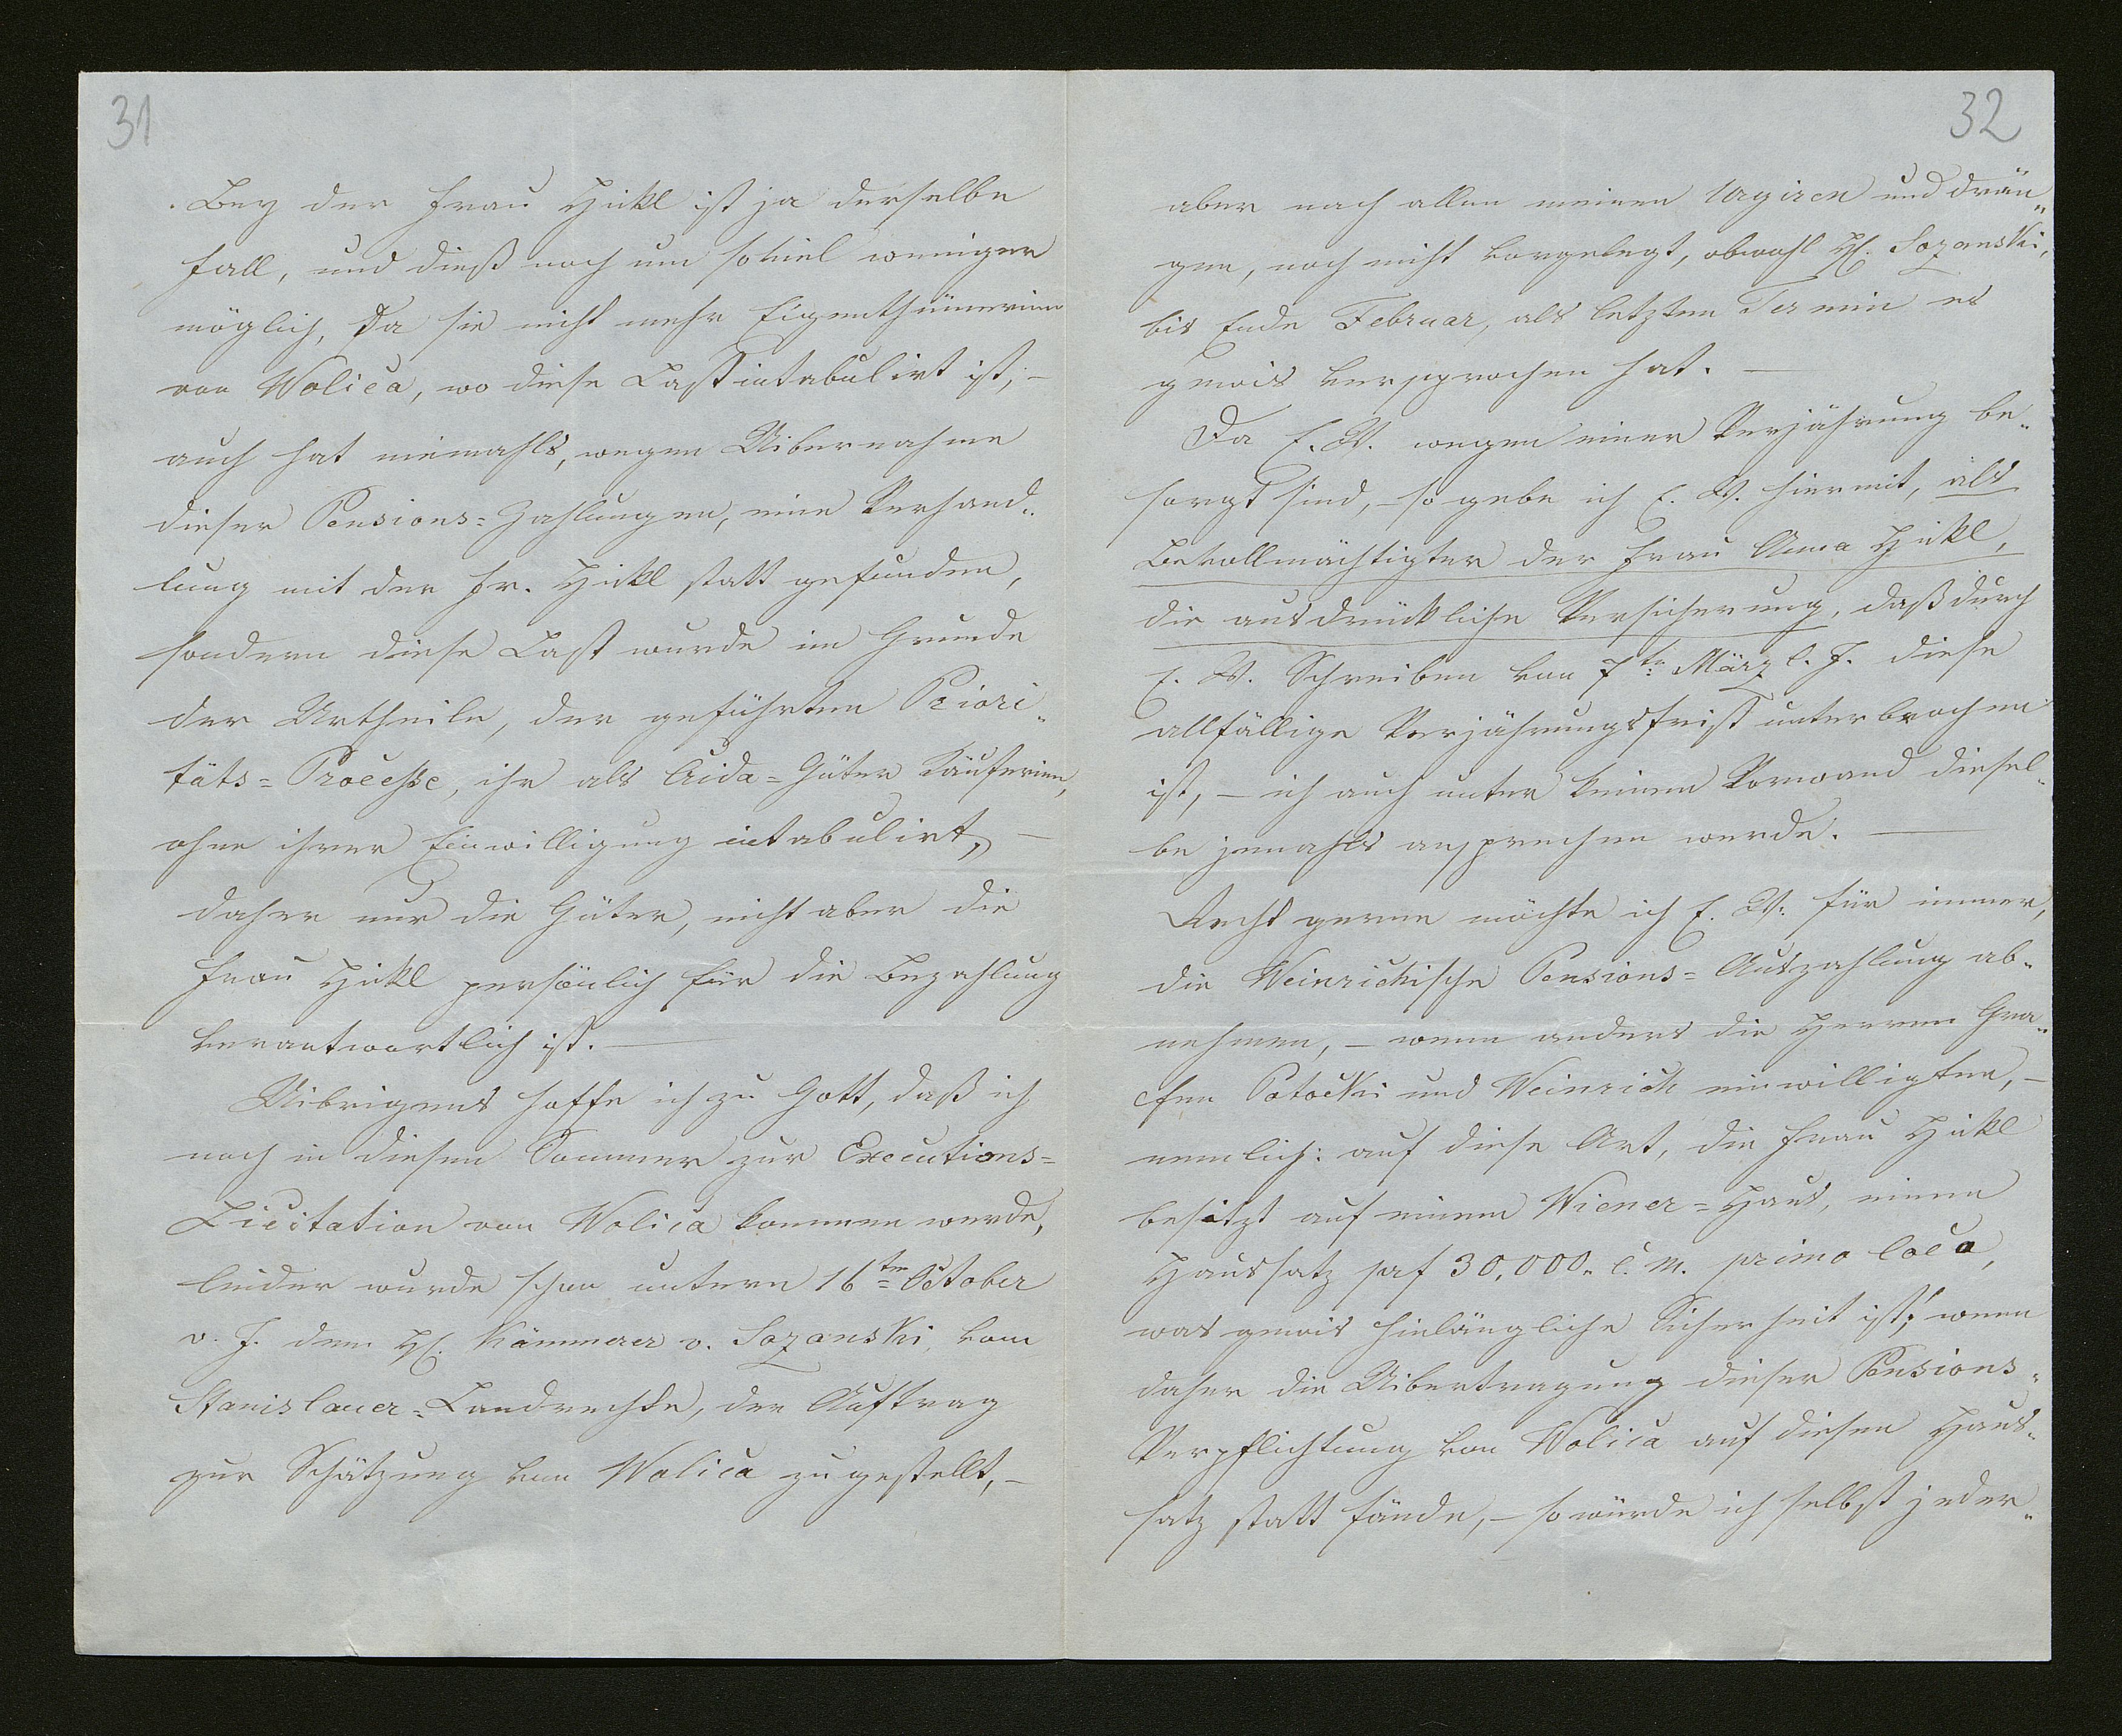 31
Bey der Frau Hickl ist ja derselbe
Fall, und dieß noch um soviel weniger
möglich, da sie nicht mehr Eigenthümerinn
von Wolica, wo diese Last intabulirt ist, –
auch hat niemahls, wegen Uibernahme
dieser Pensions=Zahlungen, eine Verhand„
lung mit der Fr. Hickl statt gefunden,
sondern diese Last wurde im Grunde
der Urtheile, der geführten Priori„
täts=Processe, ihr als Crida=Güter Käuferinn,
ohne ihrer Einwilligung intabulirt, –
daher nur die Güter, nicht aber die
Frau Hickl persönlich für die Bezahlung
verantwortlich ist. –
Uibrigens hoffe ich zu Gott, daß ich
noch in diesem Sommer zur Executions=
Licitation von Wolica kommen werde,
leider wurde schon unterm 16ten October
v. J. dem H. Kämmerer v. Sozanski, vom
Stanislauer=Landrechte, der Auftrag
zur Schätzung von Wolica zugestellt, –
32
aber nach allen meinen Urgiren und drän„
gen, noch nicht vorgelegt, obwohl H. Sozanski,
bis Ende Februar, als letzten Termin es
gewis versprochen hat. –
Da E. W. wegen einer Verjährung be„
sorgt sind, – so gebe ich E. W. hiermit, als
Bevollmächtigter der Frau Anna Hickl,
die ausdrückliche Versicherung, daß durch
E. W. Schreiben von 7tn März l. J. diese
allfällige Verjährungsfrist unterbrochen
ist, – ich auch unter keinem Vorwand diesel„
be jemahls ansprechen werde. –
Recht gerne möchte ich E. W. für immer,
die Weinrichische Pensions=Auszahlung ab„
nehmen, – wenn anders die Herren Gra„
fen Potocki und Weinrich einwilligten, –
nemlich: auf diese Art, die Frau Hickl
besitzt auf einem Wiener=Haus, einen
Haussatz pr f 30,000„ C. M. primo loco,
was gewis hinlängliche Sicherheit ist; wenn
daher die Uibertragung dieser Pensions„
Verpflichtung von Wolica auf diesen Haus„
satz statt fände, – so würde ich selbst jeder„